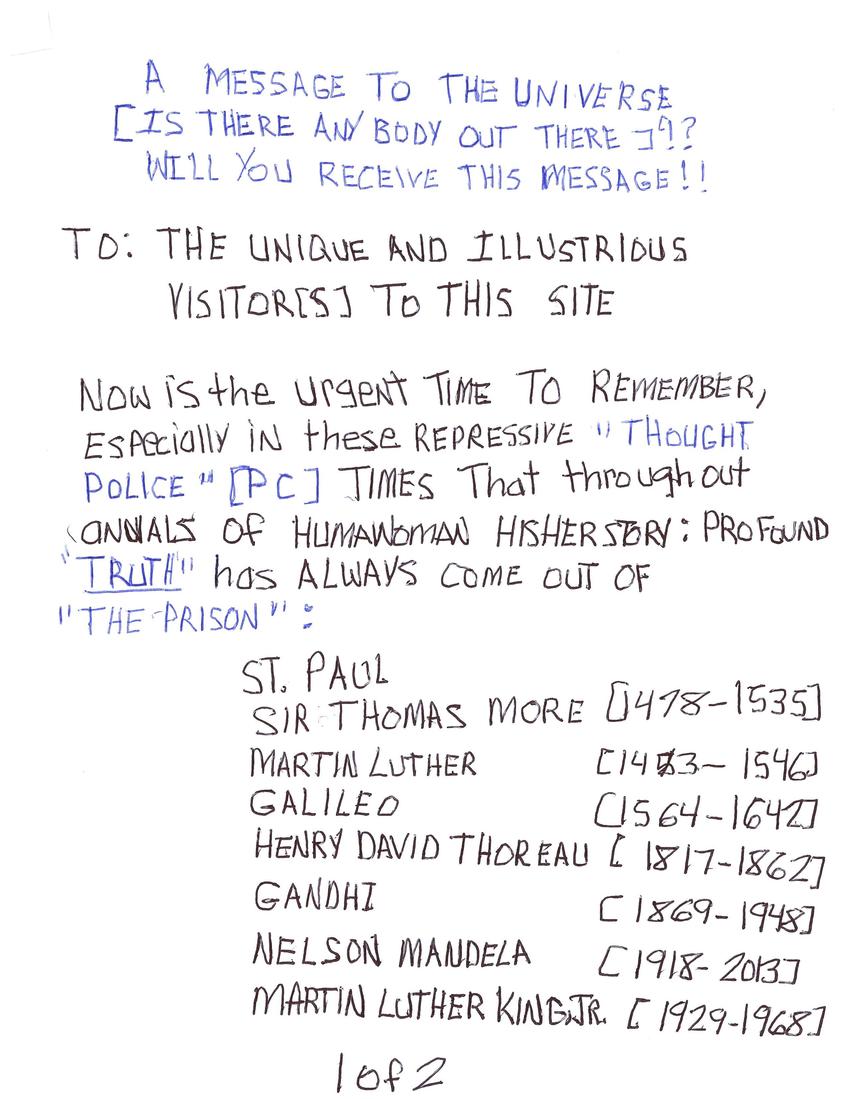 A MESSAGE TO THE UNIVERSE
[IS THERE ANY BODY OUT THERE]??
WILL YOU RECEIVE THIS MESSAGE!!
TO: THE UNIQUE AND ILLUSTRIOUS
VISITOR[S] TO THIS SITE
Now is the urgent TIME TO REMEMBER,
ESPecially in these REPRESSIVE "THOUGHT
POLICE" [PC] TIMES That throughout
ANNALS OF HUMAWOMAN HISHERSTORY: PROFOUND
"TRUTH" has ALWAYS COME OUT OF
"THE PRISON":
ST. PAUL
SIR THOMAS MORE [1478-1535]
MARTIN LUTHER [1483-1546]
GALILEO [1564-1642]
HENRY DAVID THOREAU [1817-1862]
GANDHI [1869-1948]
NELSON MANDELA [1918-2013]
MARTIN LUTHER KING, JR. [1929-1968]
1 of 2